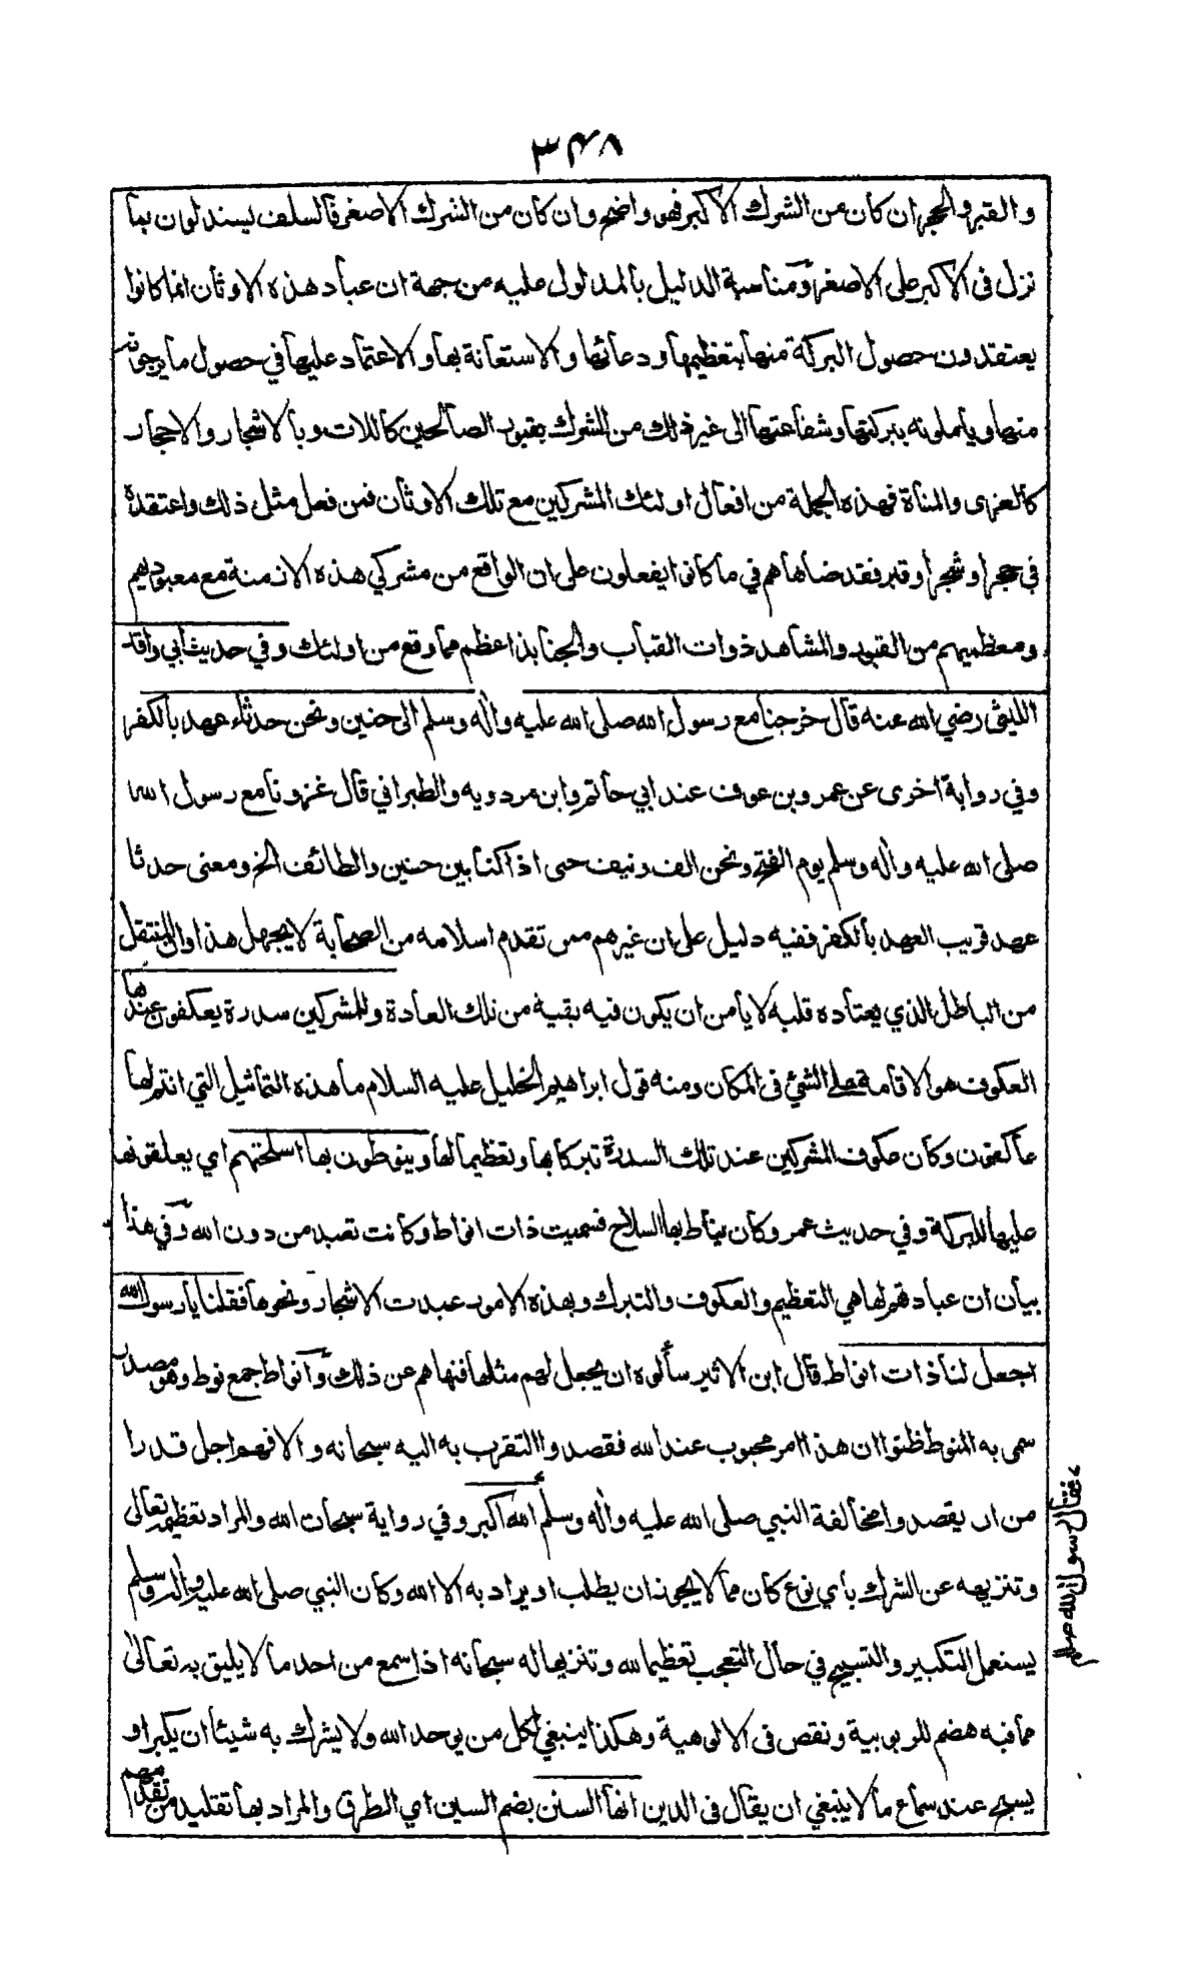 ٣٤٨
والقبر والحجر ان كان من الشرك الاكبر فهو واضح وان كان من الشرك الاصغر فالسلف يستدلون بما
نزل فى الاكبر على الاصغر ومناسبة الدليل بالمدلول عليه من جهة ان عباد هذه الاوثان انما كانوا
يعتقدون حصول البركة منها بتعظيمها ودعائها والاستعانة بها والاعتماد عليها في حصول ما يرجونه
منها ويأملونه ببركتها وشفاعتها الى غير ذلك من الشرك بقبور الصالحين كاللات وبالاشجار والاحجار
كالعزى والمناة فهذه الجملة من افعال اولئك المشركين مع تلك الاوثان فمن فعل مثل ذلك واعتقده
في حجر او شجر او قبر فقد ضاهاهم في ما كانوا يفعلون على ان الواقع من مشركي هذه الازمنة مع معبوديهم
ومعظميهم من القبور والمشاهد ذوات القباب والجنابذ اعظم مما وقع من اولئك وفي حديث ابي واقد
الليثى رضي الله عنه قال خرجنا مع رسول الله صلى الله عليه واٰله وسلم الى حنين ونحن حدثاء عهد بالكفر
وفي رواية اخرى عن عمرو بن عوف عند ابي حاتم وابن مردويه والطبراني قال غزونا مع رسول الله
صلى الله عليه واٰله وسلم يوم الفتح ونحن الف ونيف حتى اذا كنا بين حنين والطائف الخ ومعنى حدثا
عهد قريب العهد بالكفر ففيه دليل على ان غيرهم ممن تقدم اسلامه من الصحابة لا يجهل هذا وان المنتقل
من الباطل الذي يعتاده قلبه لا يأمن ان يكون فيه بقية من تلك العادة وللمشركين سدرة يعكفون عندها
العكوف هو الاقامة على الشئ فى المكان ومنه قول ابراهيم الخليل عليه السلام ما هذه التماثيل التي انتم لها
عاكفون وكان عكوف المشركين عند تلك السدرة تبركا بها وتعظيما لها وينوطون بها اسلحتهم اي يعلقونها
عليها للبركة وفي حديث عمر وكان يناط بها السلاح فسميت ذات انواط وكانت تعبد من دون الله وفي هذا
بيان ان عبادتهم لها هي التعظيم والعكوف والتبرك وبهذه الامور عبدت الاشجار ونحوها فقلنا يا رسول الله
اجعل لنا ذات انواط قال ابن الاثير سألوه ان يجعل لهم مثلها فنهاهم عن ذلك وانواط جمع نوط وهو مصدر
سمى به المنوط ظنوا ان هذا امر محبوب عند الله فقصدوا التقرب به اليه سبحانه والا فهم اجل قدرا
من ان يقصدوا مخالفة النبي صلى الله عليه واٰله وسلم الله اكبر وفي رواية سبحان الله والمراد تعظيمه تعالى
وتنزيهه عن الشرك بأي نوع كان مما لا يجوز ان يطلب او يراد به الا الله وكان النبي صلى الله عليه واٰله وسلم
يستعمل التكبير والتسبيح في حال التعجب تعظيما لله وتنزيها له سبحانه اذا سمع من احد ما لا يليق به تعالىٰ
مما فيه هضم للربوبية ونقص فى الالوهية وهكذا ينبغي لكل من يوحد الله ولا يشرك به شيئا ان يكبر او
يسبح عند سماع ما لا ينبغي ان يقال فى الدين انها السنن بضم السين اي الطرق والمراد بها تقليد من تقدمهم
فقال رسول الله صلم